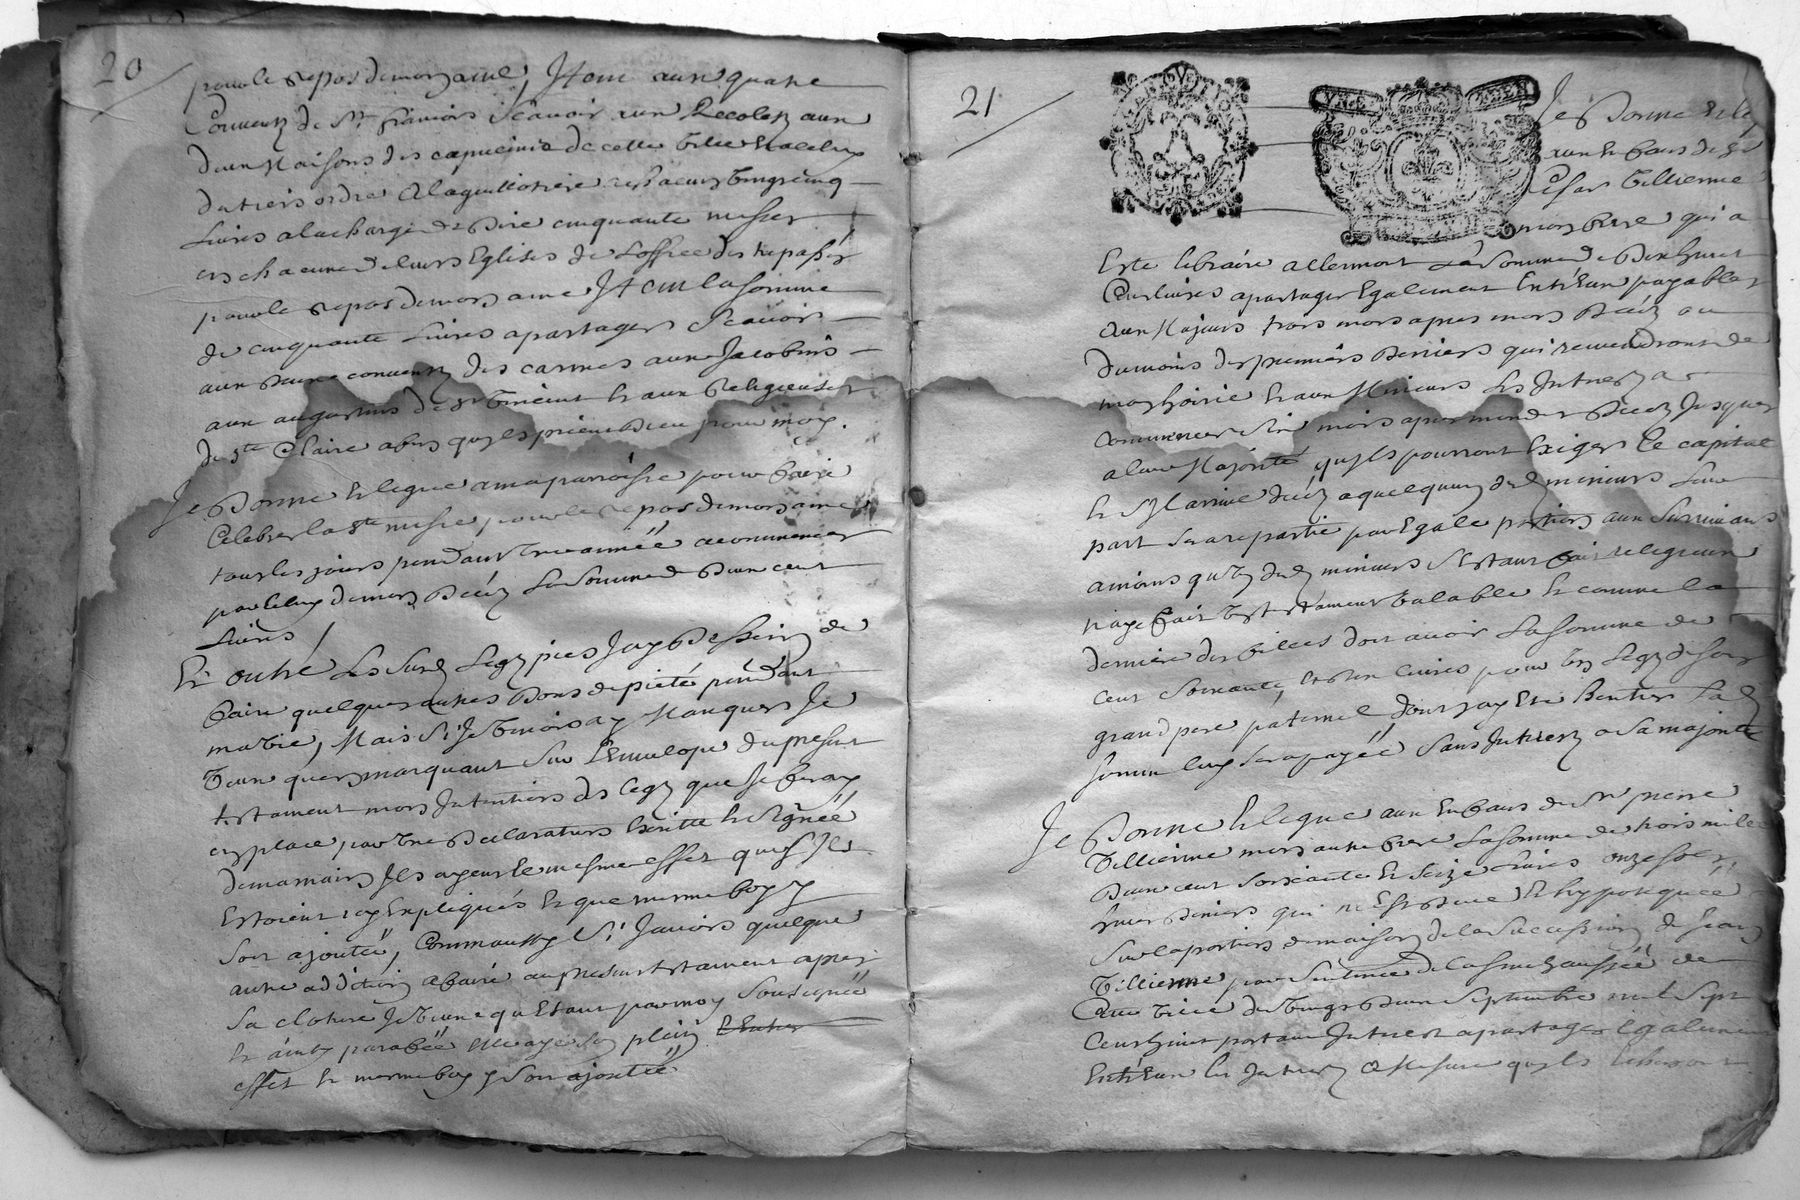 20
pour le repos de mon ame, Item aux quatre
Couvents de St francois Scavoir aux Recolets aux
deux Maisons des capucins de cette ville et a celuy
du tiers ordre a la guillotiere vingt cinq
Livres a la charge de Dire cinquante messes
en chacune de leurs Eglises de L'office des trepassés
pour le repos de mon ame Item la somme
de cinquante Livres a partager Scavoir
aux deux couvents des carmes aux Jacobins
aux augustins de St Vincent et aux Religieuses
de Ste Claire afin quils prient Dieu pour moy.
Je Donne et legue a ma parroisse pour faire
Celebrer la Ste messe pour le repos de mon ame
tous les jours pendant une année a commencer
par celuy de mon Décéz La Somme de Deux cent
Livres /
Et outre Les Susd Legz pies J'ay Dessein de
faire quelques autres Dons de pieté pendant
ma vie, Mais Si Je Venois a y Manquer Je
Veux qu'en marquant Sur L'Envelope du present
testament mes Intentions des Legz que Je feray
en place par une Declaration Escritte et Signée
de ma main Ils ayent le mesme effet que s'Ils
Estoient icy Expliqués et que mesme foy y
Soit ajoutée, Comm'aussy Si J'avois quelque
autre addition a faire au present testament apres
Sa cloture Je Veux qu'Etant par moy Sousignée
et ainsy paraféé elle aye Son plein
effet et mesme foy y Soit ajoutéé
21
Je Donne et leg
aux Enfans de
Cesar Villienne
mon frere qui a
Esté libraire a Clermont La Somme de Dix huit
Cent Livres a partager Egalement Entr'Eux payables
aux Majeurs trois mois apres mon Décéz ou
du moins des premiers Deniers qui reviendront de
mon hoirie et aux Mineurs Les Interez a
commencer Six mois apres mondit Décéz Jusques
a leur Majorité quils pourront Exiger Le capital
et S'Il arrive décéz a quelquun desd mineurs Leur
part Sera repartie par Egale portion aux Survivans
a moins qu'un desd mineurs S'Etant fait religieux
n'aye fait un testament Valable et comme la
derniere des filles doit avoir La Somme de
cent Soixante et dix Livres pour un Legz de son
grand pere paternel dont j'ay Eté heritier Lad
somme luy Sera payéé Sans Interez a Sa majorité
Je Donne et legue aux Enfans du Sr pierre
Villienne mon autre frere La Somme de trois mille
Deux cent Soixante et Seize Livres onze sols
huit Deniers qui m'Est Deue et hypotequéé
Sur la portion de maison de la Succession de Jean
Villienne par Sentence de la Senechaussée de
Cette Ville du Vingt Deux Septembre mil Sept
Cent huit portant Interez a partager également
Entr'Eux les Interez a Mesure quils